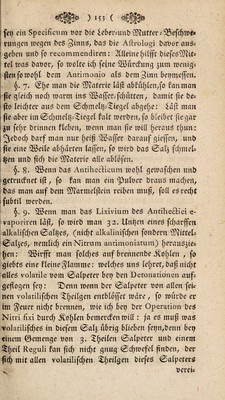 ) 153 (
sey ein Specificum vor die Leber und Mutter-Beschwe-
rungen wegen des Zinns, das die Astrologi davor aus-
geben und so recommendiren: Alleine hilfft dieses Mit-
tel was davor, so wolte ich seine Würckung zum wenig-
sten so wohl dem Antimonio als dem Zinn beymessen.
§. 7. Ehe man die Materie läst abkühlen, so kan man
sie gleich noch worm ins Wasser schütten, damit sie de-
sto leichter aus dem Schmeltz-Tiegel abgehe: Läst man
sie aber im Schmeltz-Tiegel kalt werden, so bleibet sie gar
zu sehr drinnen kleben, wenn man sie will heraus thun:
Jedoch darf man nur heiß Wasser darauf giessen, und
sie eine Weile abhärten lassen, so wird das Saltz schmel-
tzen und sich die Materie alle ablösen.
§. 8. Wenn man das Antihecticum wohl gewaschen und
getrucknet ist, so kan man ein Pulver draus machen,
das man auf dem Marmelstein reiben muß, soll es recht
subtil werden.
§. 9. Wenn man das Lixivium des Antihectici e-
vaporiren läst, so wird man 32. Untzen eines scharffen
alkalischen Saltzes, (nicht alkalinischen sondern Mittel-
Saltzes, nemlich ein Nitrum antimoniatum) herauszie-
hen: Wirfft man solches auf brennende Kohlen, so
giebts eine kleine Flamme: welches uns lehret, daß nicht
alles volatile vom Salpeter bey den Detonationen auf-
geflogen sey: Denn wenn der Salpeter von allen sei-
nen volatilischen Theilgen entblösset wäre, so würde er
im Feuer nicht brennen, wie ich bey der Operation des
Nitri fixi durch Kohlen bemercken will: ja es muß was
volatilisches in diesem Saltz übrig blieben seyn, denn bey
einem Gemenge von 3. Theilen Salpeter und einem
Theil Reguli fan sich nicht gnug Schwefel finden, der
sich mit allen volatilischen Theilgen dieses Salpeters
verei-